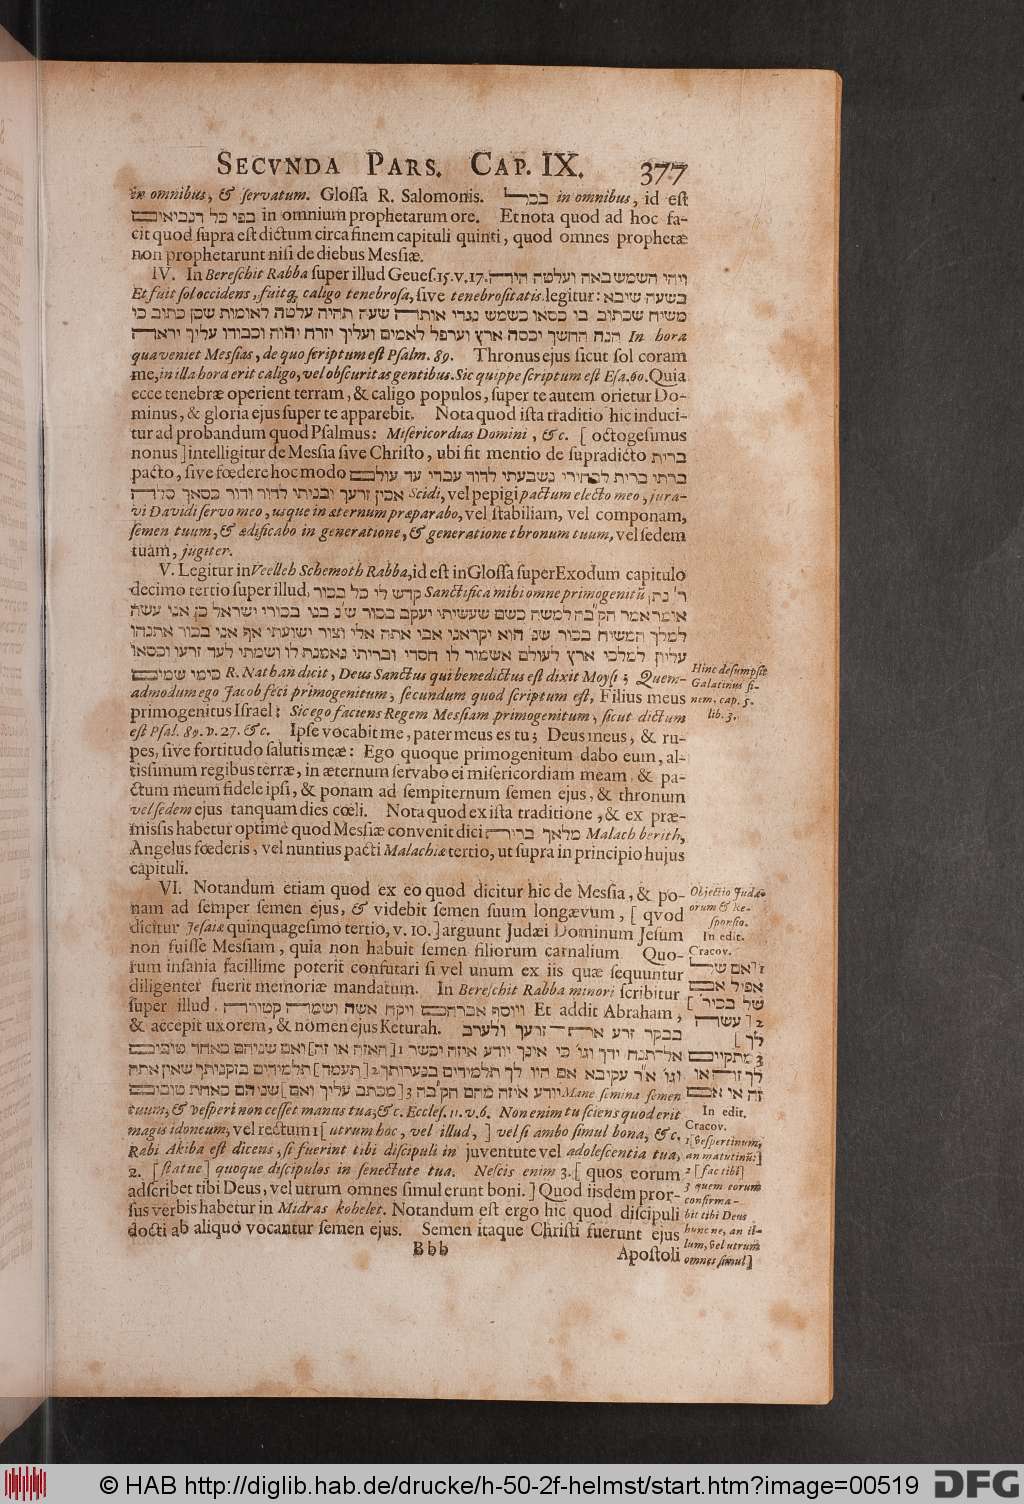 SECVNDA PARS. CAP. IX. 377
in omnibus, & servatum. Glossa R. Salomonis. בכל in omnibus, id est
בפי כל הנביאים in omnium prophetarum ore. Et nota quod ad hoc fa-
cit quod supra est dictum circa finem capituli quinti, quod omnes prophetæ
non prophetarunt nisi de diebus Messiæ.
IV. In Bereschit Rabba super illud Genes. 15. v. 17. ויהי השמש באה ועלטה היה
Et fuit sol occidens, fuitq; caligo tenebrosa, sive tenebrositatis legitur: בשעה שיבא
משיח שכתוב בו כסאו כשמש נגדי אותה שעה תהיה עלטה לאומות שכן כתוב כי
הנה החשך יכסה ארץ וערפל לאמים ועליך יזרח יהוה וכבודו עליך יראה In hora
qua veniet Messias, de quo scriptum est Psalm. 89. Thronus ejus sicut sol coram
me, in illa hora erit caligo, vel obscuritas gentibus. Sic quippe scriptum est Esa. 60. Quia
ecce tenebræ operient terram, & caligo populos, super te autem orietur Do-
minus, & gloria ejus super te apparebit. Nota quod ista traditio hic induci-
tur ad probandum quod Psalmus: Misericordias Domini, &c. [ octogesimus
nonus ] intelligitur de Messia sive Christo, ubi fit mentio de supradicto ברית
pacto, sive fœdere hoc modo כרתי ברית לבחירי נשבעתי לדוד עבדי עד עולם
אכין זרעך ובניתי לדור ודור כסאך סלה Scidi, vel pepigi pactum electo meo, jura-
vi Davidi servo meo, usque in æternum præparabo, vel stabiliam, vel componam,
semen tuum, & ædificabo in generatione, & generatione thronum tuum, vel sedem
tuam, jugiter.
V. Legitur in Veelleh Schemoth Rabba, id est in Glossa super Exodum capitulo
decimo tertio super illud, קדש לי כל בכור Sanctifica mihi omne primogenitū, ר' נתן
אומר אמר הק״בה למשה כשם שעשיתי יעקב בכור שנ' בני בכורי ישראל כן אני עשה
למלך המשיח בכור שנ' הוא יקראני אבי אתה אלי וצור ישועתי אף אני בכור אתנהו
עליון למלכי ארץ לעולם אשמור לו חסדי ובריתי נאמנת לו ושמתי לעד זרעו וכסאו
כימי שמים R. Nathan dicit, Deus Sanctus qui benedictus est dixit Moysi; Quem-
admodum ego Jacob feci primogenitum, secundum quod scriptum est, Filius meus
primogenitus Israel: Sic ego faciens Regem Messiam primogenitum, sicut dictum
est Psal. 89. v. 27. &c. Ipse vocabit me, pater meus es tu; Deus meus, & ru-
pes, sive fortitudo salutis meæ: Ego quoque primogenitum dabo eum, al-
tissimum regibus terræ, in æternum servabo ei misericordiam meam, & pa-
ctum meum fidele ipsi, & ponam ad sempiternum semen ejus, & thronum
vel sedem ejus tanquam dies cœli. Nota quod ex ista traditione, & ex præ-
missis habetur optime quod Messiæ convenit dici מלאך ברית Malach berith,
Angelus fœderis, vel nuntius pacti Malachiæ tertio, ut supra in principio hujus
capituli.
VI. Notandum etiam quod ex eo quod dicitur hic de Messia, & po-
nam ad semper semen ejus, & videbit semen suum longævum, [ qvod
dicitur Jesaiæ quinquagesimo tertio, v. 10. ] arguunt Judæi Dominum Jesum
non fuisse Messiam, quia non habuit semen filiorum carnalium Quo-
rum insania facillime poterit confutari si vel unum ex iis quæ sequuntur
diligenter fuerit memoriæ mandatum. In Bereschit Rabba minori scribitur
super illud. ויוסף אברהם ויקח אשה ושמה קטורה Et addit Abraham,
& accepit uxorem, & nomen ejus Keturah. בבקר זרע את זרעך ולערב
אל תנח ידך וגו' כי אינך יודע איזה יכשר 1 [ האזה או זה ] ואם שניהם כאחד טובים
וגו' א״ר עקיבא אם היו לך תלמידים בנערותך 2 [ תעמד ] תלמידים בזקנותך שאין אתה
יודע איזה מהם הק״בה 3 [ מכתב עליך ואם ] שניהם כאחת טובים Mane semina semen
tuum, & vesperi non cesset manus tua, &c. Eccles. 11. v. 6. Non enim tu sciens quod erit
magis idoneum, vel rectum 1 [ utrum hoc, vel illud, ] vel si ambo simul bona, &c.
Rabi Akiba est dicens, si fuerint tibi discipuli in juventute vel adolescentia tua,
2. [ statue ] quoque discipulos in senectute tua. Nescis enim 3. [ quos eorum
adscribet tibi Deus, vel utrum omnes simul erunt boni. ] Quod iisdem pror-
sus verbis habetur in Midras kohelet. Notandum est ergo hic quod discipuli
docti ab aliquo vocantur semen ejus. Semen itaque Christi fuerunt ejus
Bbb
Apostoli
Hinc desumpsit
Galatinus fi-
nem, cap. 5.
lib. 3.
Objectio Judæ-
orum & Re-
sponsio.
In edit.
Cracov.
אפיל אם
של בכיר ]
2 [ עשה
לך ]
3 מתקיים
לך זה או
זה או אם
In edit.
Cracov.
1 [ vespertinum,
an matutinū: ]
2 [ fac tibi ]
3 quem eorum
confirma-
bit tibi Deus
hunc ne, an il-
lum, vel utrum
omnes simul ]
© HAB http://diglib.hab.de/drucke/h-50-2f-helmst/start.htm?image=00519
DFG